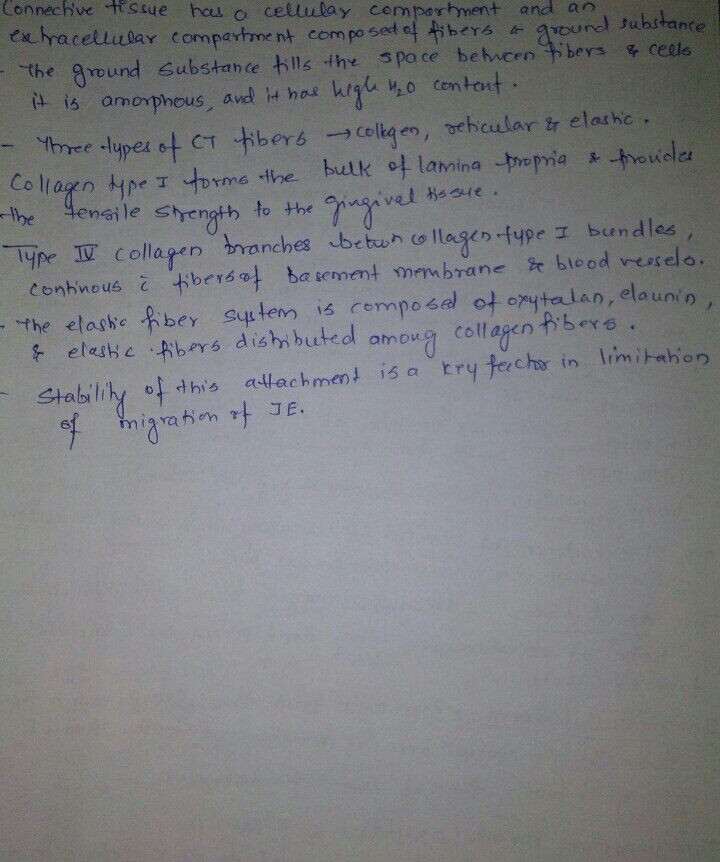 Connective tissue has a cellular compartment and an
extracellular compartment composed of fibers & ground substance
- The ground substance fills the space between fibers & cells
it is amorphous, and it has high H2O content.
- Three types of CT fibers → collgen, reticular & elastic.
Collagen type I forms the bulk of lamina propria & provides
the tensile strength to the gingival tissue.
Type IV collagen branches betwn collagen type I bundles,
continous c̄ fibers of basement membrane & blood vessels.
- The elastic fiber system is composed of oxytalan, elaunin,
& elastic fibers distributed among collagen fibers.
- Stability of this attachment is a key factor in limitation
of migration of JE.